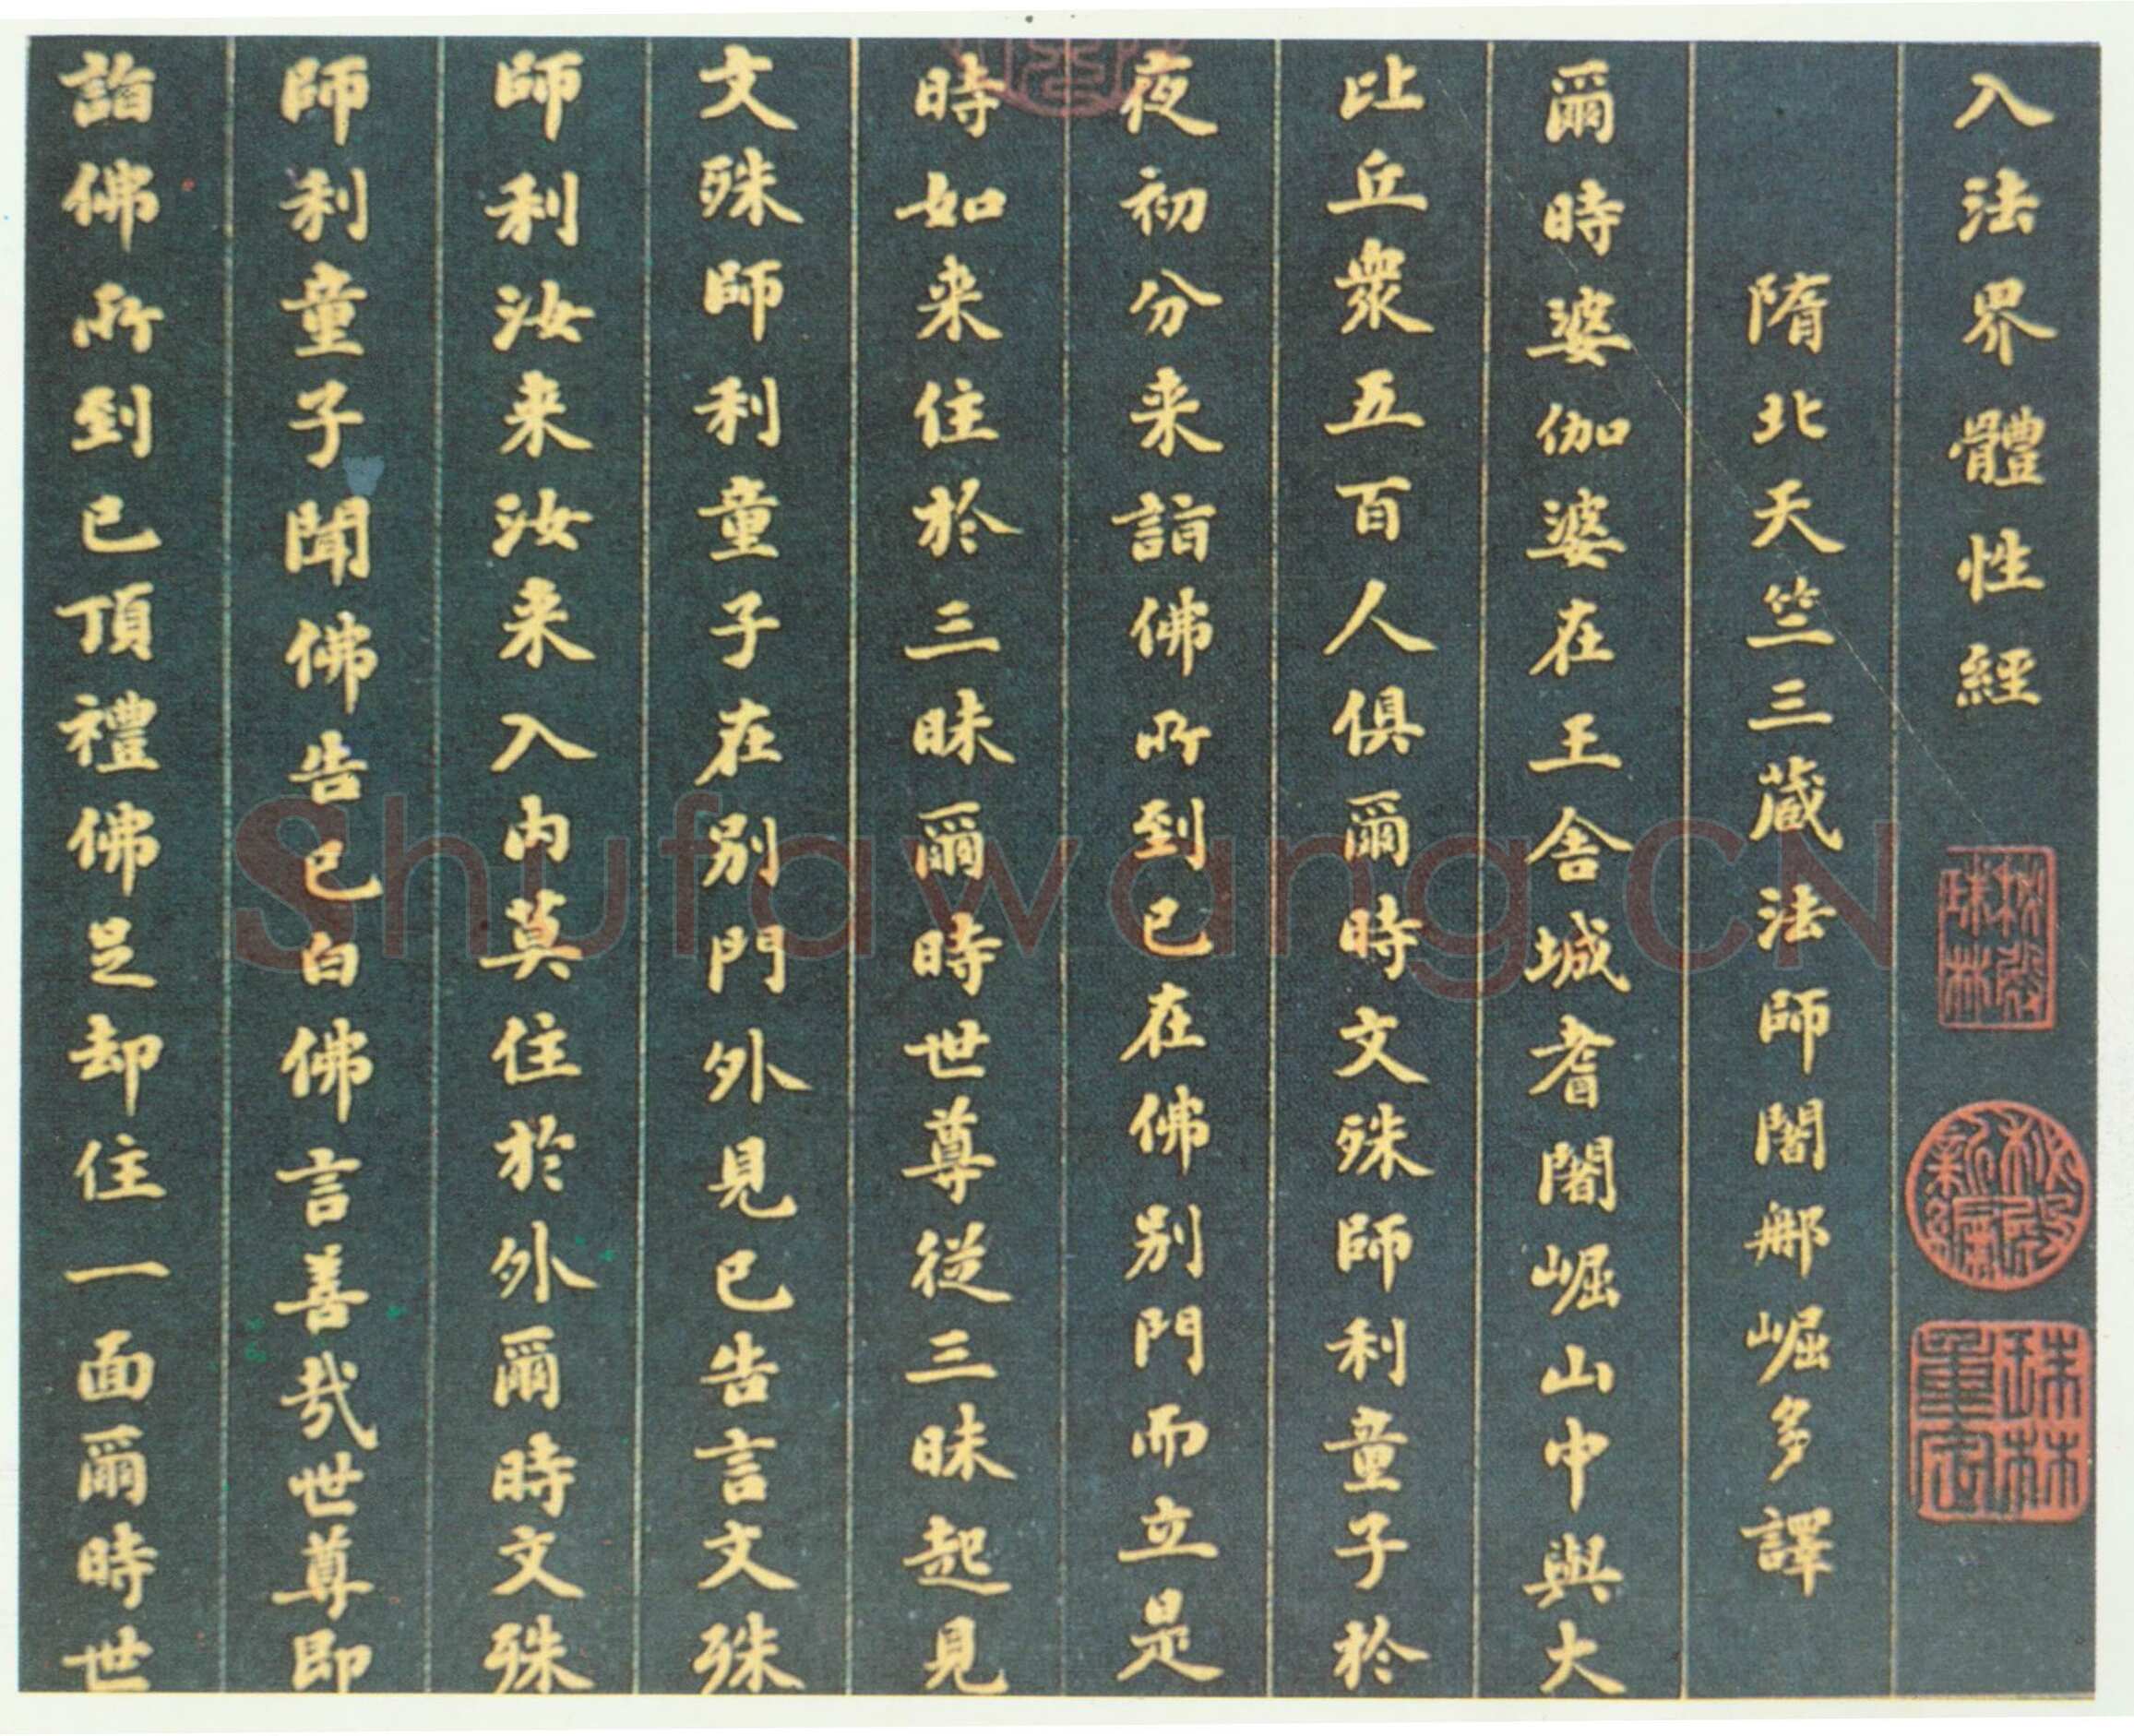 入法界體性經
隋北天竺三藏法師闍那崛多譯
爾時婆伽婆在王舍城耆闍崛山中與大
比丘衆五百人俱爾時文殊師利童子於
夜初分来詣佛所到已在佛别門而立是
時如来住於三昧爾時世尊從三昧起見
文殊師利童子在别門外見已告言文殊
師利汝来汝来入内莫住於外爾時文殊
師利童子聞佛告已白佛言善哉世尊即
詣佛所到已頂禮佛足却住一面爾時世
秘殿珠林
秘殿新編
珠林重定
Shufawang.CN